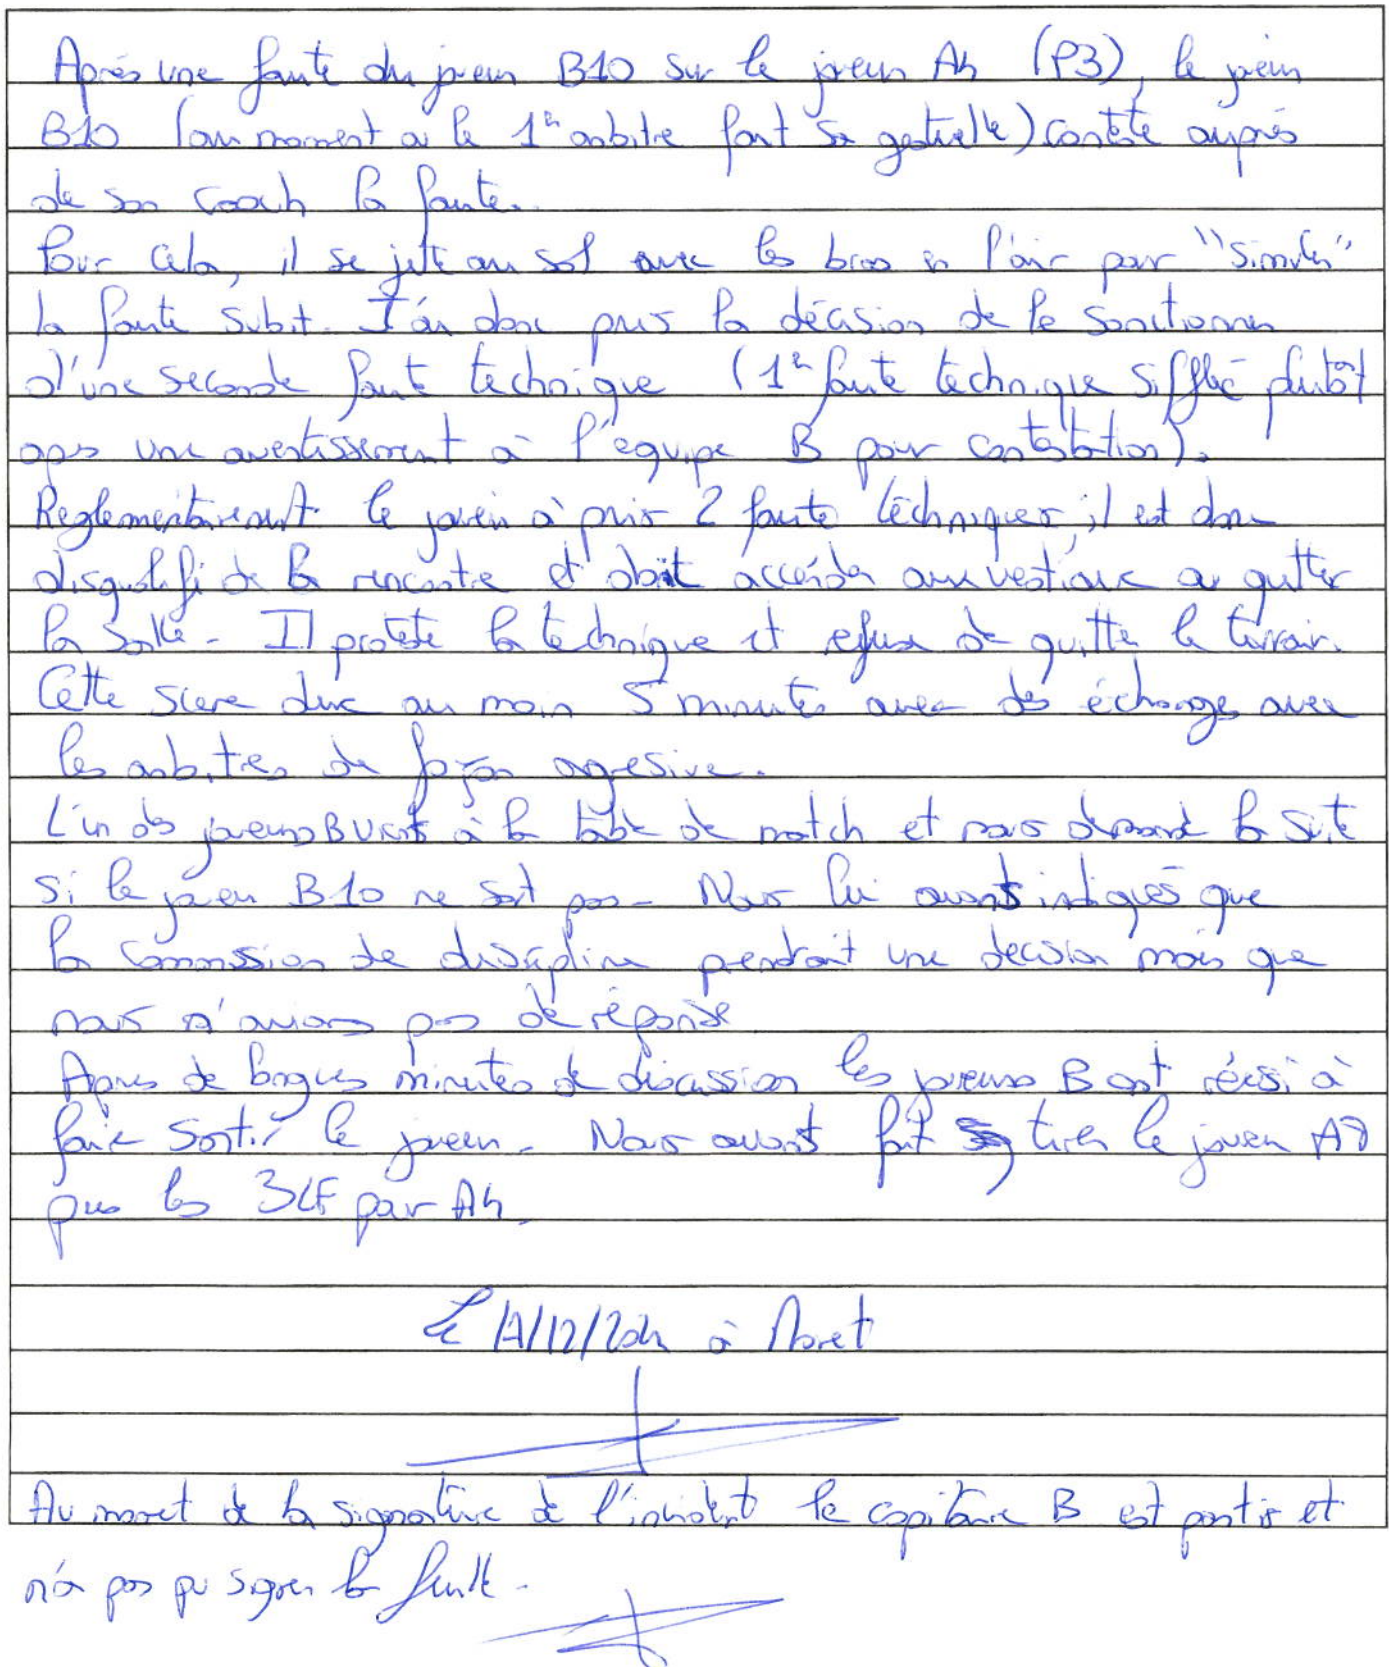 Après une faute du joueur B10 sur le joueur A4 (P3), le joueur
B10 (au moment ou le 1er arbitre fait sa gestuelle) conteste auprès
de son coach la faute.
Pour cela, il se jette au sol avec les bras en l'air pour "simuler"
la faute subit. J'ai donc pris la décision de le sanctionner
d'une seconde faute technique (1er faute technique sifflé plutôt
après une avertissement à l'équipe B pour contestation).
Reglementairement le joueur à pris 2 faute téchniques, il est donc
disqualifi de la rencontre et doit accéder aux vestiaire ou quitter
la salle. Il proteste la technique et refuse de quitter le terrain.
Cette scene dure au moin 5 minutes avec des échanges avec
les arbitres de façon agresive.
L'un des joueurs B vient à la table de match et nous demande la suite
si le joueur B10 ne sort pas. Nous lui avons indiqués que
la commission de discipline prendrait une decision mais que
nous n'avions pas de réponse
Apres de longues minutes de discussion les joueurs B ont réusi à
faire sortir le joueur. Nous avons fait tirer le joueur A7
puis les 3LF par A4.
Le /12/ à Moret
Au moment de la signature de l'incident le capitaine B est partis et
n'a pas pu signer la feuille.